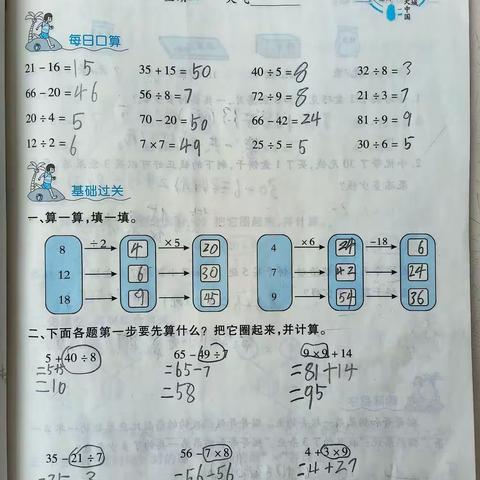 每日口算
21-16=15 35+15=50 40÷5=8 32÷8=3
66-20=46 56÷8=7 72÷9=8 21÷3=7
20÷4=5 70-20=50 66-42=24 81÷9=9
12÷2=6 7×7=49 25÷5=5 30÷6=5
基础过关
一、算一算,填一填。
8 ÷2 4 ×5 20 4 ×6 24 -18 6
12 6 30 7 42 24
18 9 45 9 54 36
二、下面各题第一步要先算什么?把它圈起来,并计算。
5+40÷8 65-49÷7 9×9+14
=5+5 =65-7 =81+14
=10 =58 =95
35-21÷7 56-7×8 4+3×9
=35-3 =56-56 =4+27